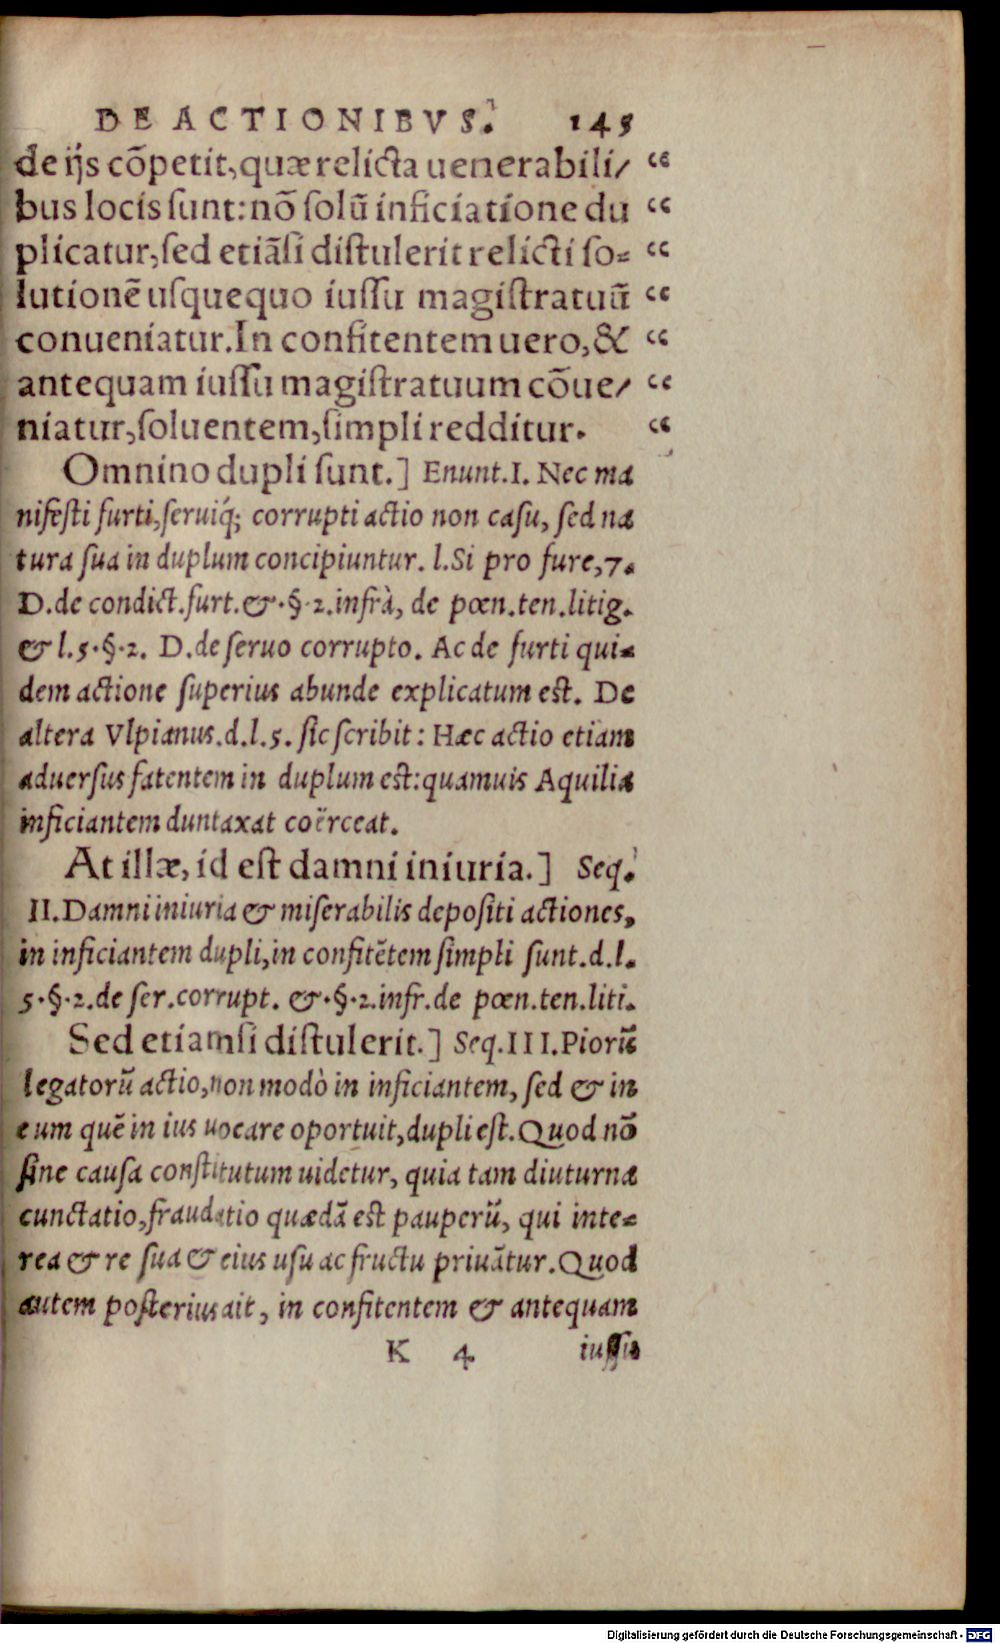 DE ACTIONIBVS. 145
de ijs cõpetit, quæ relicta uenerabili/ “
bus locis sunt: nõ solũ inficiatione du “
plicatur, sed etiãsi distulerit relicti so- “
lutionẽ usquequo iussu magistratuũ “
conueniatur. In confitentem uero, & “
antequam iussu magistratuum cõue/ “
niatur, soluentem, simpli redditur. “
Omnino dupli sunt.] Enunt. I. Nec ma
nifesti furti, seruiq́; corrupti actio non casu, sed na
tura sua in duplum concipiuntur. l. Si pro fure, 7.
D. de condict. furt. & .§. 2. infrà, de pœn. ten. litig.
& l. 5. §. 2. D. de seruo corrupto. Ac de furti qui-
dem actione superius abunde explicatum est. De
altera Vlpianus. d. l. 5. sic scribit: Hæc actio etiam
aduersus fatentem in duplum est: quamuis Aquilia
inficiantem duntaxat coërceat.
At illæ, id est damni iniuria.] Seq.
II. Damni iniuria & miserabilis depositi actiones,
in inficiantem dupli, in confitẽtem simpli sunt. d. l.
5. §. 2. de ser. corrupt. & .§. 2. infr. de pœn. ten. liti.
Sed etiamsi distulerit.] Seq. III. Piorũ
legatorũ actio, non modò in inficiantem, sed & in
eum quẽ in ius uocare oportuit, dupli est. Quod nõ
sine causa constitutum uidetur, quia tam diuturna
cunctatio, fraudatio quædã est pauperũ, qui inte-
rea & re sua & eius usu ac fructu priuãtur. Quod
autem posterius ait, in confitentem & antequam
K 4 iussu
Digitalisierung gefördert durch die Deutsche Forschungsgemeinschaft - DFG